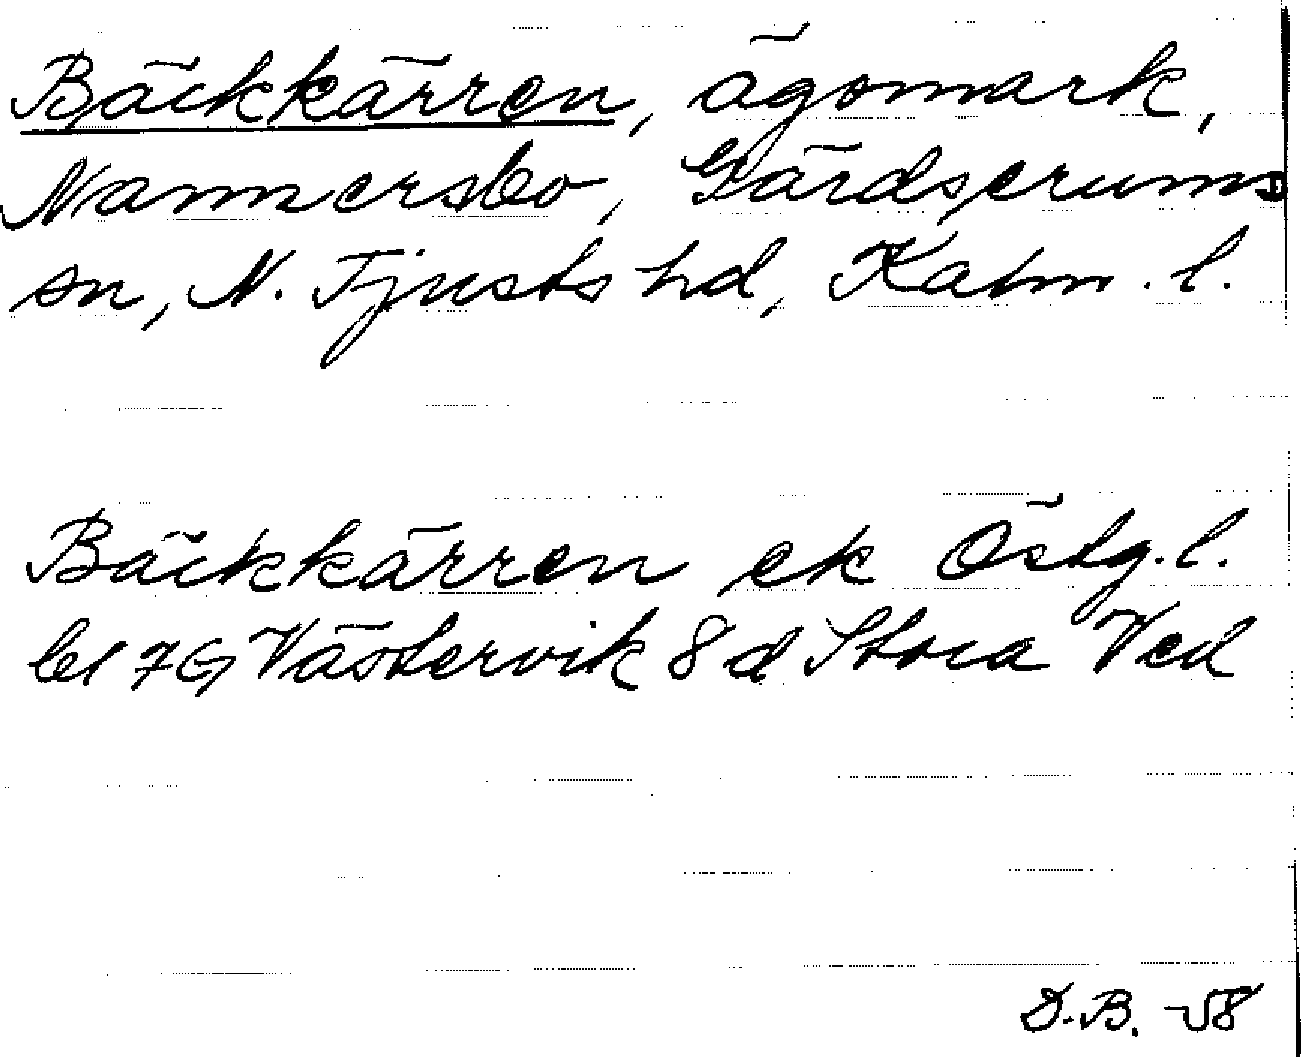 Bäckkärren, ägomark,
Nannersbo, Gärdserums
sn, N. Tjusts hd, Kalm. l.
Bäckkärren ek Östg. l.
bl 7G Västervik 8 d Stora Ved
D.B. -58